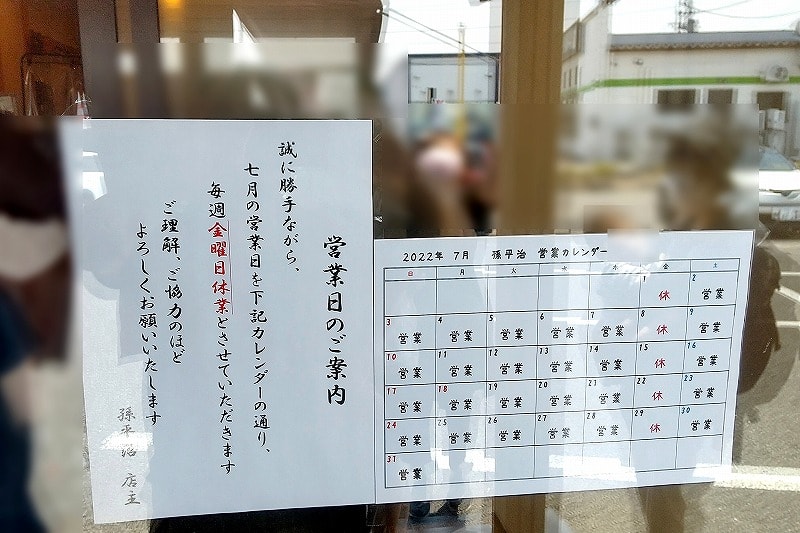 営業日のご案内
誠に勝手ながら、
七月の営業日を下記カレンダーの通り、
毎週金曜日休業とさせていただきます
ご理解、ご協力のほど
よろしくお願いいたします
孫平治 店主
2022年 7月 孫平治 営業カレンダー
日 月 火 水 木 金 土
1 2
休 営業
3 4 5 6 7 8 9
営業 営業 営業 営業 営業 休 営業
10 11 12 13 14 15 16
営業 営業 営業 営業 営業 休 営業
17 18 19 20 21 22 23
営業 営業 営業 営業 営業 休 営業
24 25 26 27 28 29 30
営業 営業 営業 営業 営業 休 営業
31
営業